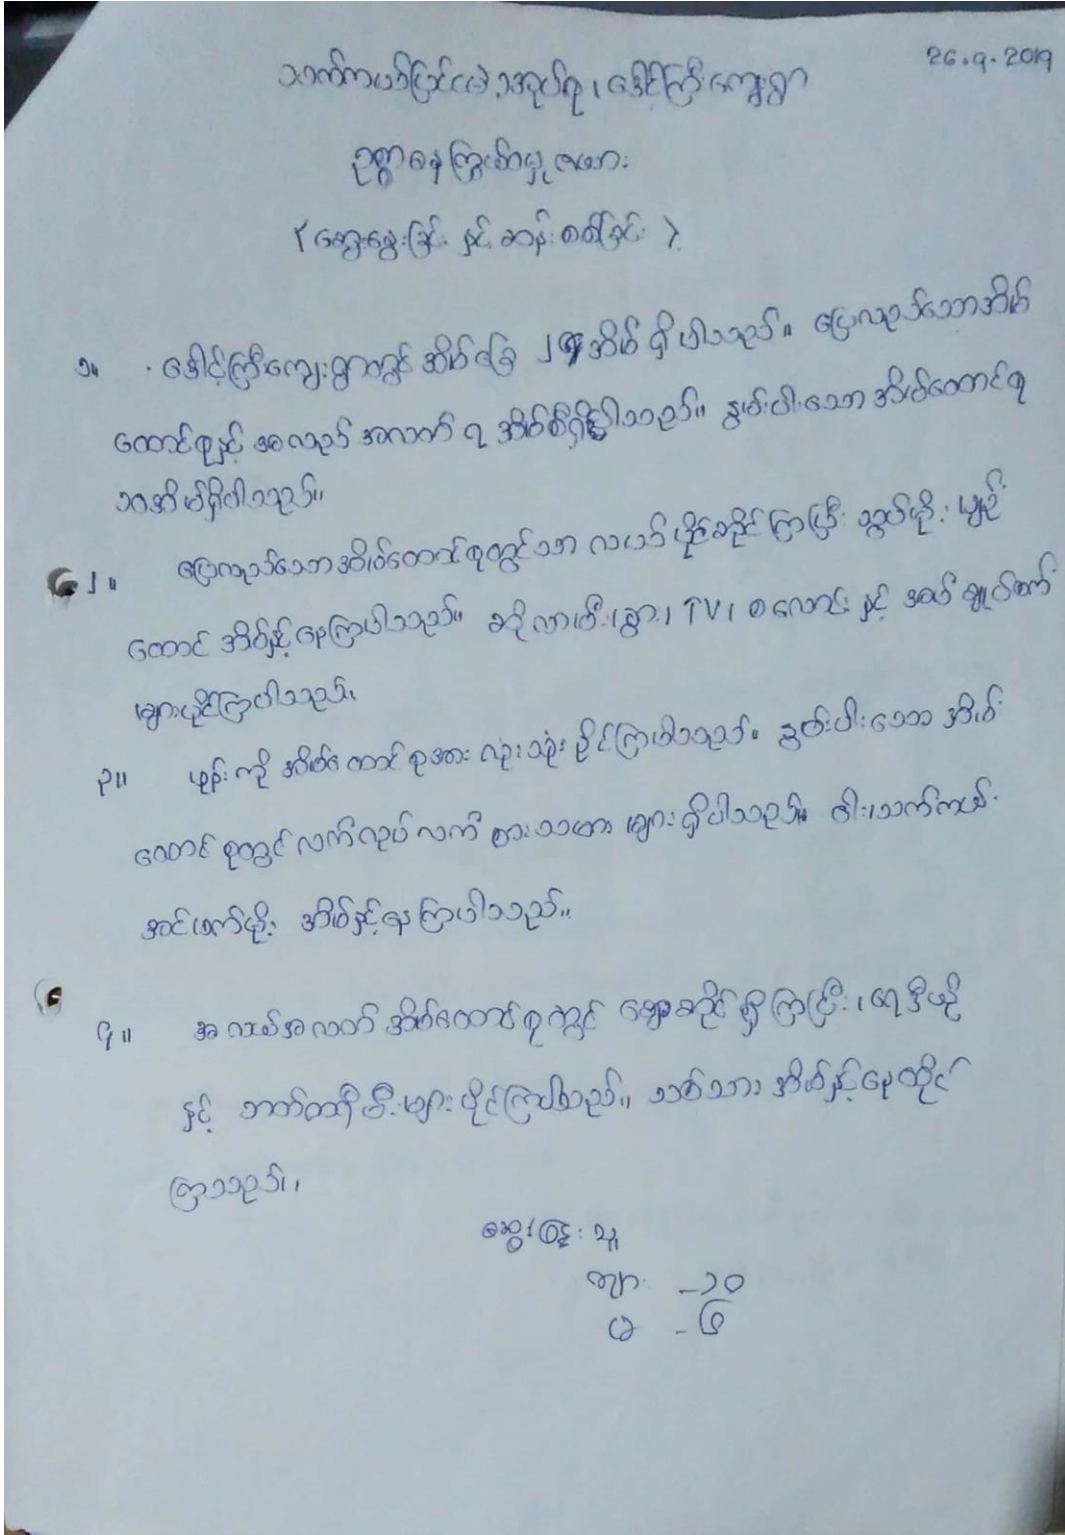 26.9.2019
သက်ကယ်ပြင်ငမဲ့အုပ်စု၊ ဒေါင့်ကြီးကျေးရွာ
ဥစ္စာဓနကြွယ်ဝမှုဇယား
(ဆွေးနွေးခြင်း နှင့် ဆန်းစစ်ခြင်း)
၁။ ဒေါင့်ကြီးကျေးရွာတွင် အိမ်ခြေ အိမ် ရှိပါသည်။ ပြေလည်သောအိမ်
ထောင်စုနှင့် အလယ်အလတ် ၇ အိမ်စီရှိပါသည်။ နွမ်းပါးသော အိမ်ထောင်စု
၁၀အိမ်ရှိပါသည်။
၂။ ပြေလည်သောအိမ်ထောင်စုတွင်သာ လယ်ပိုင်ဆိုင်ကြပြီး သွပ်မိုး၊ ပျဉ်
ထောင် အိမ်နှင့်နေကြပါသည်။ ဆိုလာမီး၊ နွား၊ TV၊ စလောင်း နှင့် အပ်ချုပ်စက်
များပိုင်ကြပါသည်။
၃။ ဖုန်းကို အိမ်ထောင်စုအားလုံးသုံးနိုင်ကြပါသည်။ နွမ်းပါးသော အိမ်
ထောင်စုတွင် လက်လုပ်လက်စားသမား များရှိပါသည်။ ဝါး၊ သက်ကယ်
အင်ဖက်မိုး အိမ်နှင့်နေကြပါသည်။
၄။ အလယ်အလတ် အိမ်ထောင်စုတွင် ဈေးဆိုင်ရှိကြပြီး၊ ရေဒီယို
နှင့် ဘက်ထရီမီးများပိုင်ကြပါသည်။ သစ်သား အိမ်နှင့်နေထိုင်
ကြသည်။
ဆွေးနွေးသူ
ကျား - ၁၀
မ - ၆